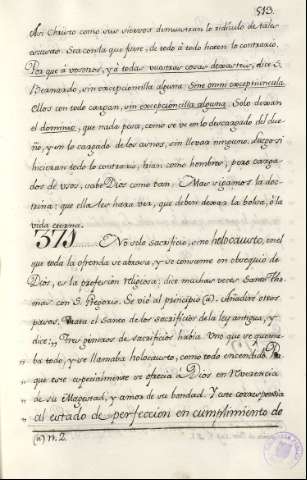 513.
Asi Christo como sus siervos demuestran lo ridiculo de tales
escusas. Sea corta que fuere, de todo à todo hacen lo contrario.
Por que à vosotros, y à todas vuestras cosas dexasteis, dice S.
Bernardo, sin excepcioncilla alguna: Sine omni exceptiuncula.
Ellos con todo cargan, sin excepcioncilla alguna. Solo dexan
el dominio, que nada pesa, como se ve en lo descargado del due-
ño, y en lo cargado de los asnos, sin llevar ninguno. Luego si
hicieran todo lo contrario, irian como hombres; pero carga-
dos de usos, sabe Dios como van. Mas sigamos la doc-
trina: que ella les hara ver, que deben dexar la bolsa, ò la
vida eterna.
375. No solo sacrificio, sino holocausto, en el
que toda la ofrenda se abrasa, y se consume en obsequio de
Dios, es la profesion religiosa; dice muchas veces Santo Tho-
mas con S. Gregorio. Se viò al principio (a). Añadire otros
pasos. Trata el Santo de los sacrificios de la ley antigua, y
dice: Tres generos de sacrificios habia. Uno que se quema-
ba todo, y se llamaba holocausto, como todo encendido. Por
que este especialmente se ofrecia à Dios en reverencia
de su Magestad, y amor de su bondad. Y este correspondia
al estado de perfeccion en cumplimiento de
(a) n. 2.